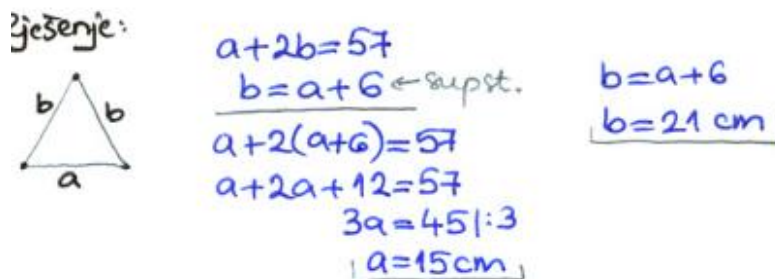 Rješenje:
b
b
a
a+2b=57
b=a+6 ← supst.
a+2(a+6)=57
a+2a+12=57
3a=45 |:3
a=15cm
b=a+6
b=21 cm